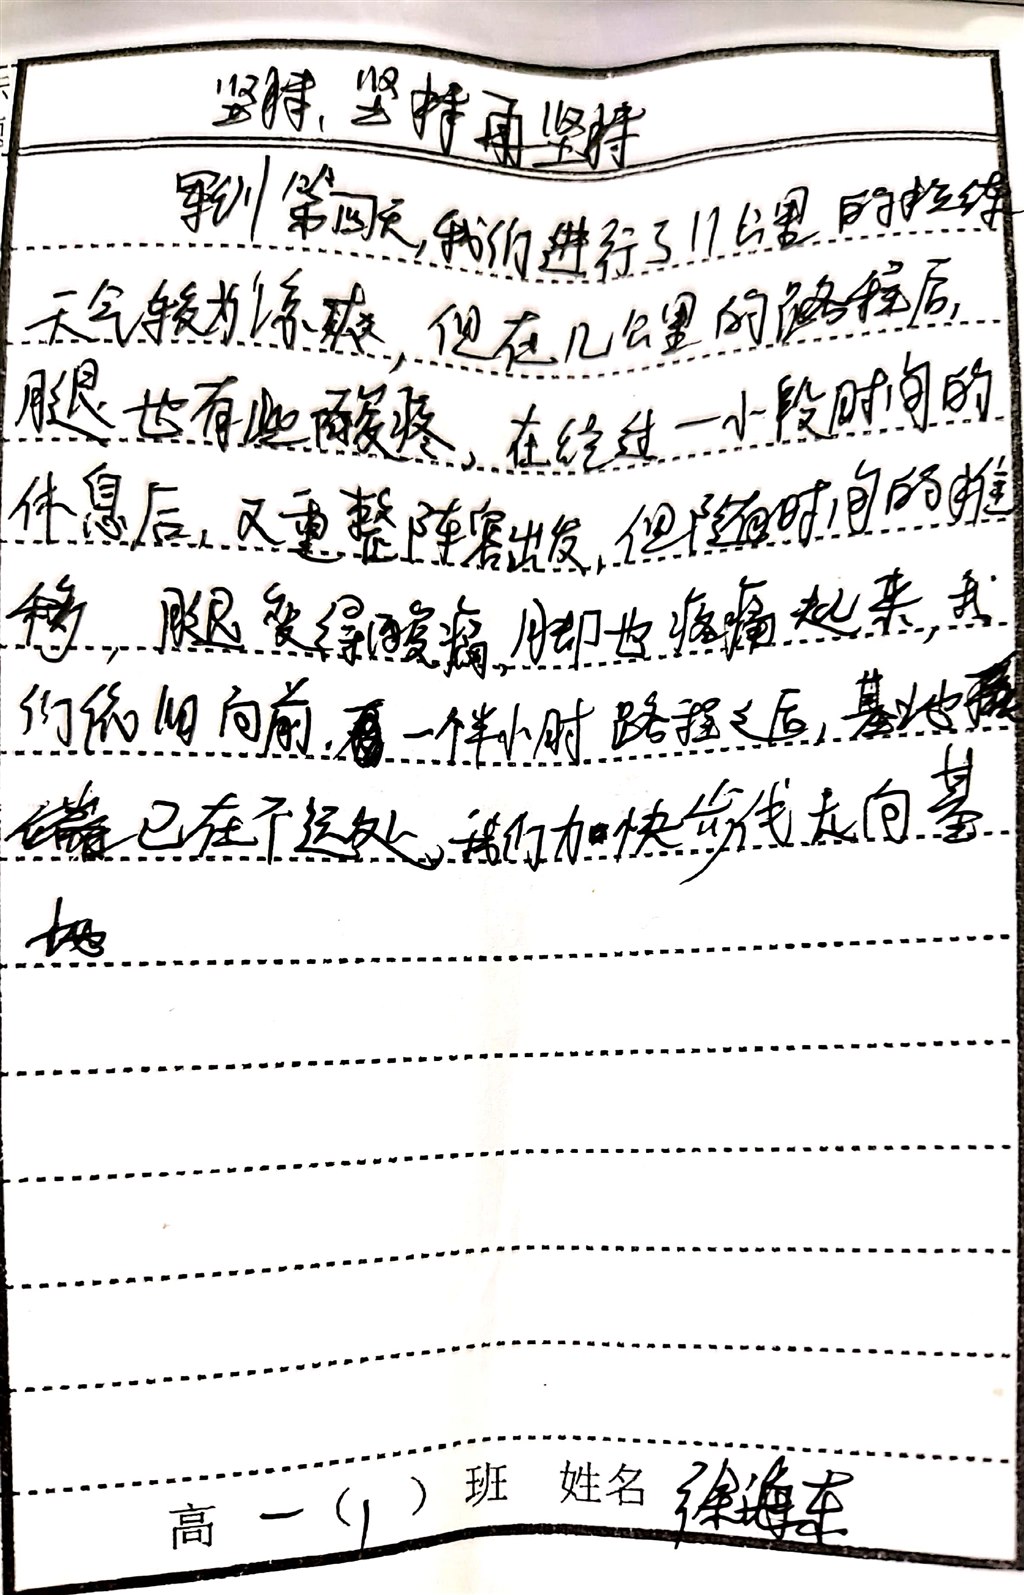 坚持,坚持再坚持
军训第四天,我们进行了11公里的拉练
天气较为凉爽,但在几公里的路程后,
腿也有些酸疼,在经过一小段时间的
休息后,又重整阵容出发,但随时间的推
移,腿变得酸痛,脚也疼痛起来,我
们依旧向前,一个半小时路程之后,基地
已在不远处,我们加快步伐走向基
地
高一(1)班 姓名 徐海东